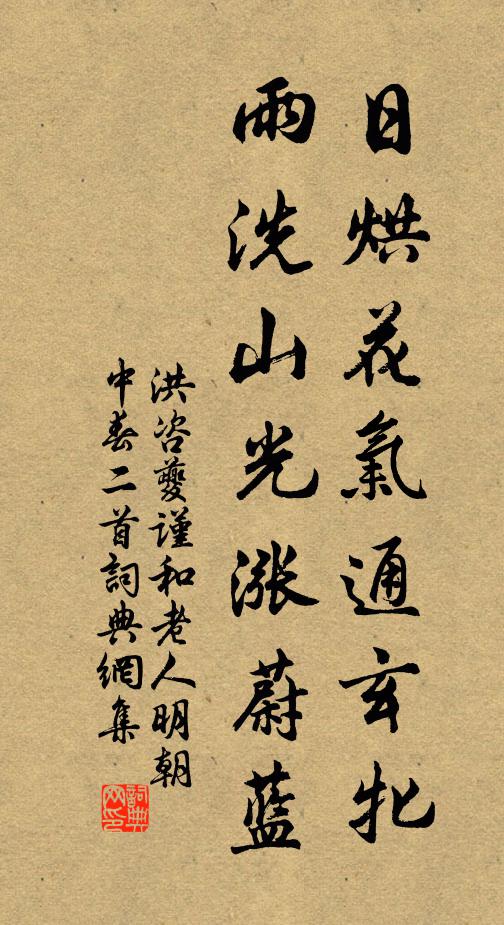 日烘花氣通玄牝
雨洗山光漲蔚藍
洪咨夔謹和老人明朝
中春二首詞典網集
詞典網印